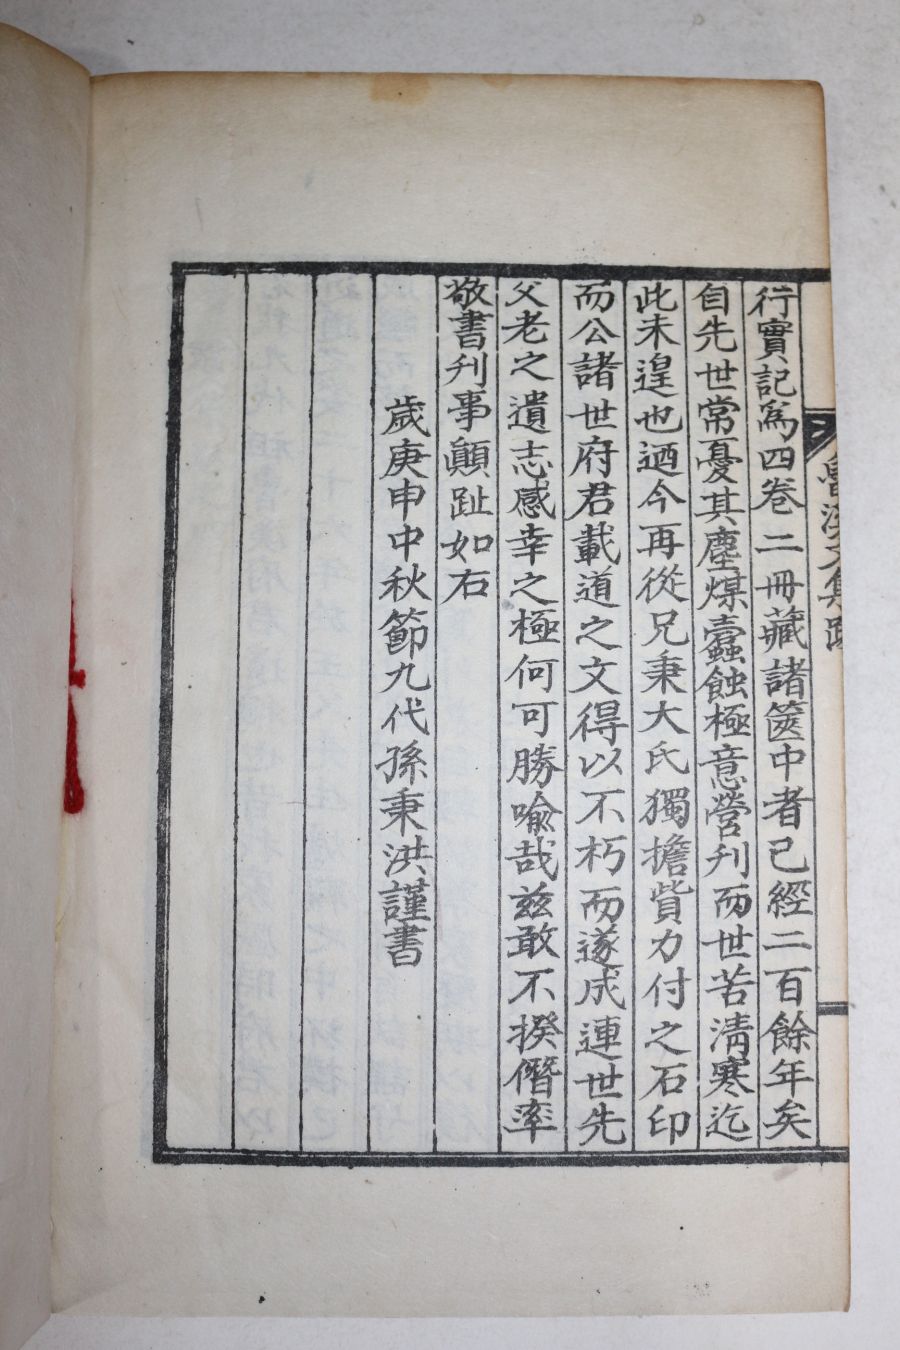 行實記爲四卷二冊藏諸篋中者已經二百餘年矣
自先世常憂其塵煤蠹蝕極意營刊而世苦淸寒迄
此未遑也迺今再從兄秉大氏獨擔貲力付之石印
而公諸世府君載道之文得以不朽而遂成連世先
父老之遺志感幸之極何可勝喩哉玆敢不揆僭率
敬書刊事顚趾如右
歲庚申中秋節九代孫秉洪謹書
文集跋